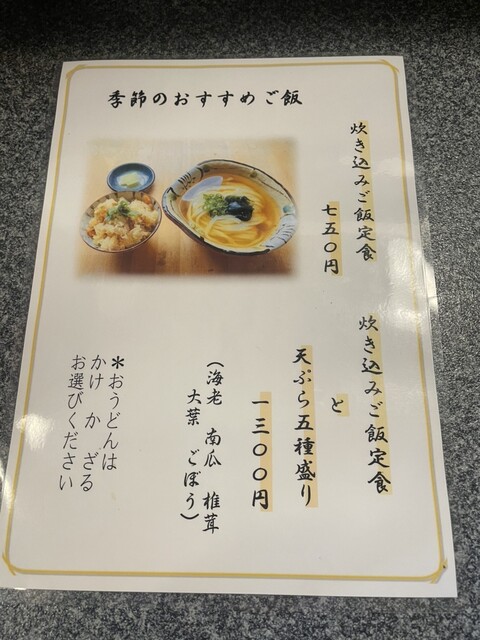 季節のおすすめご飯
炊き込みご飯定食
七五〇円
炊き込みご飯定食
と
天ぷら五種盛り
一三〇〇円
（海老　南瓜　椎茸
大葉　ごぼう）
＊おうどんは
かけ　か　ざる
お選びください